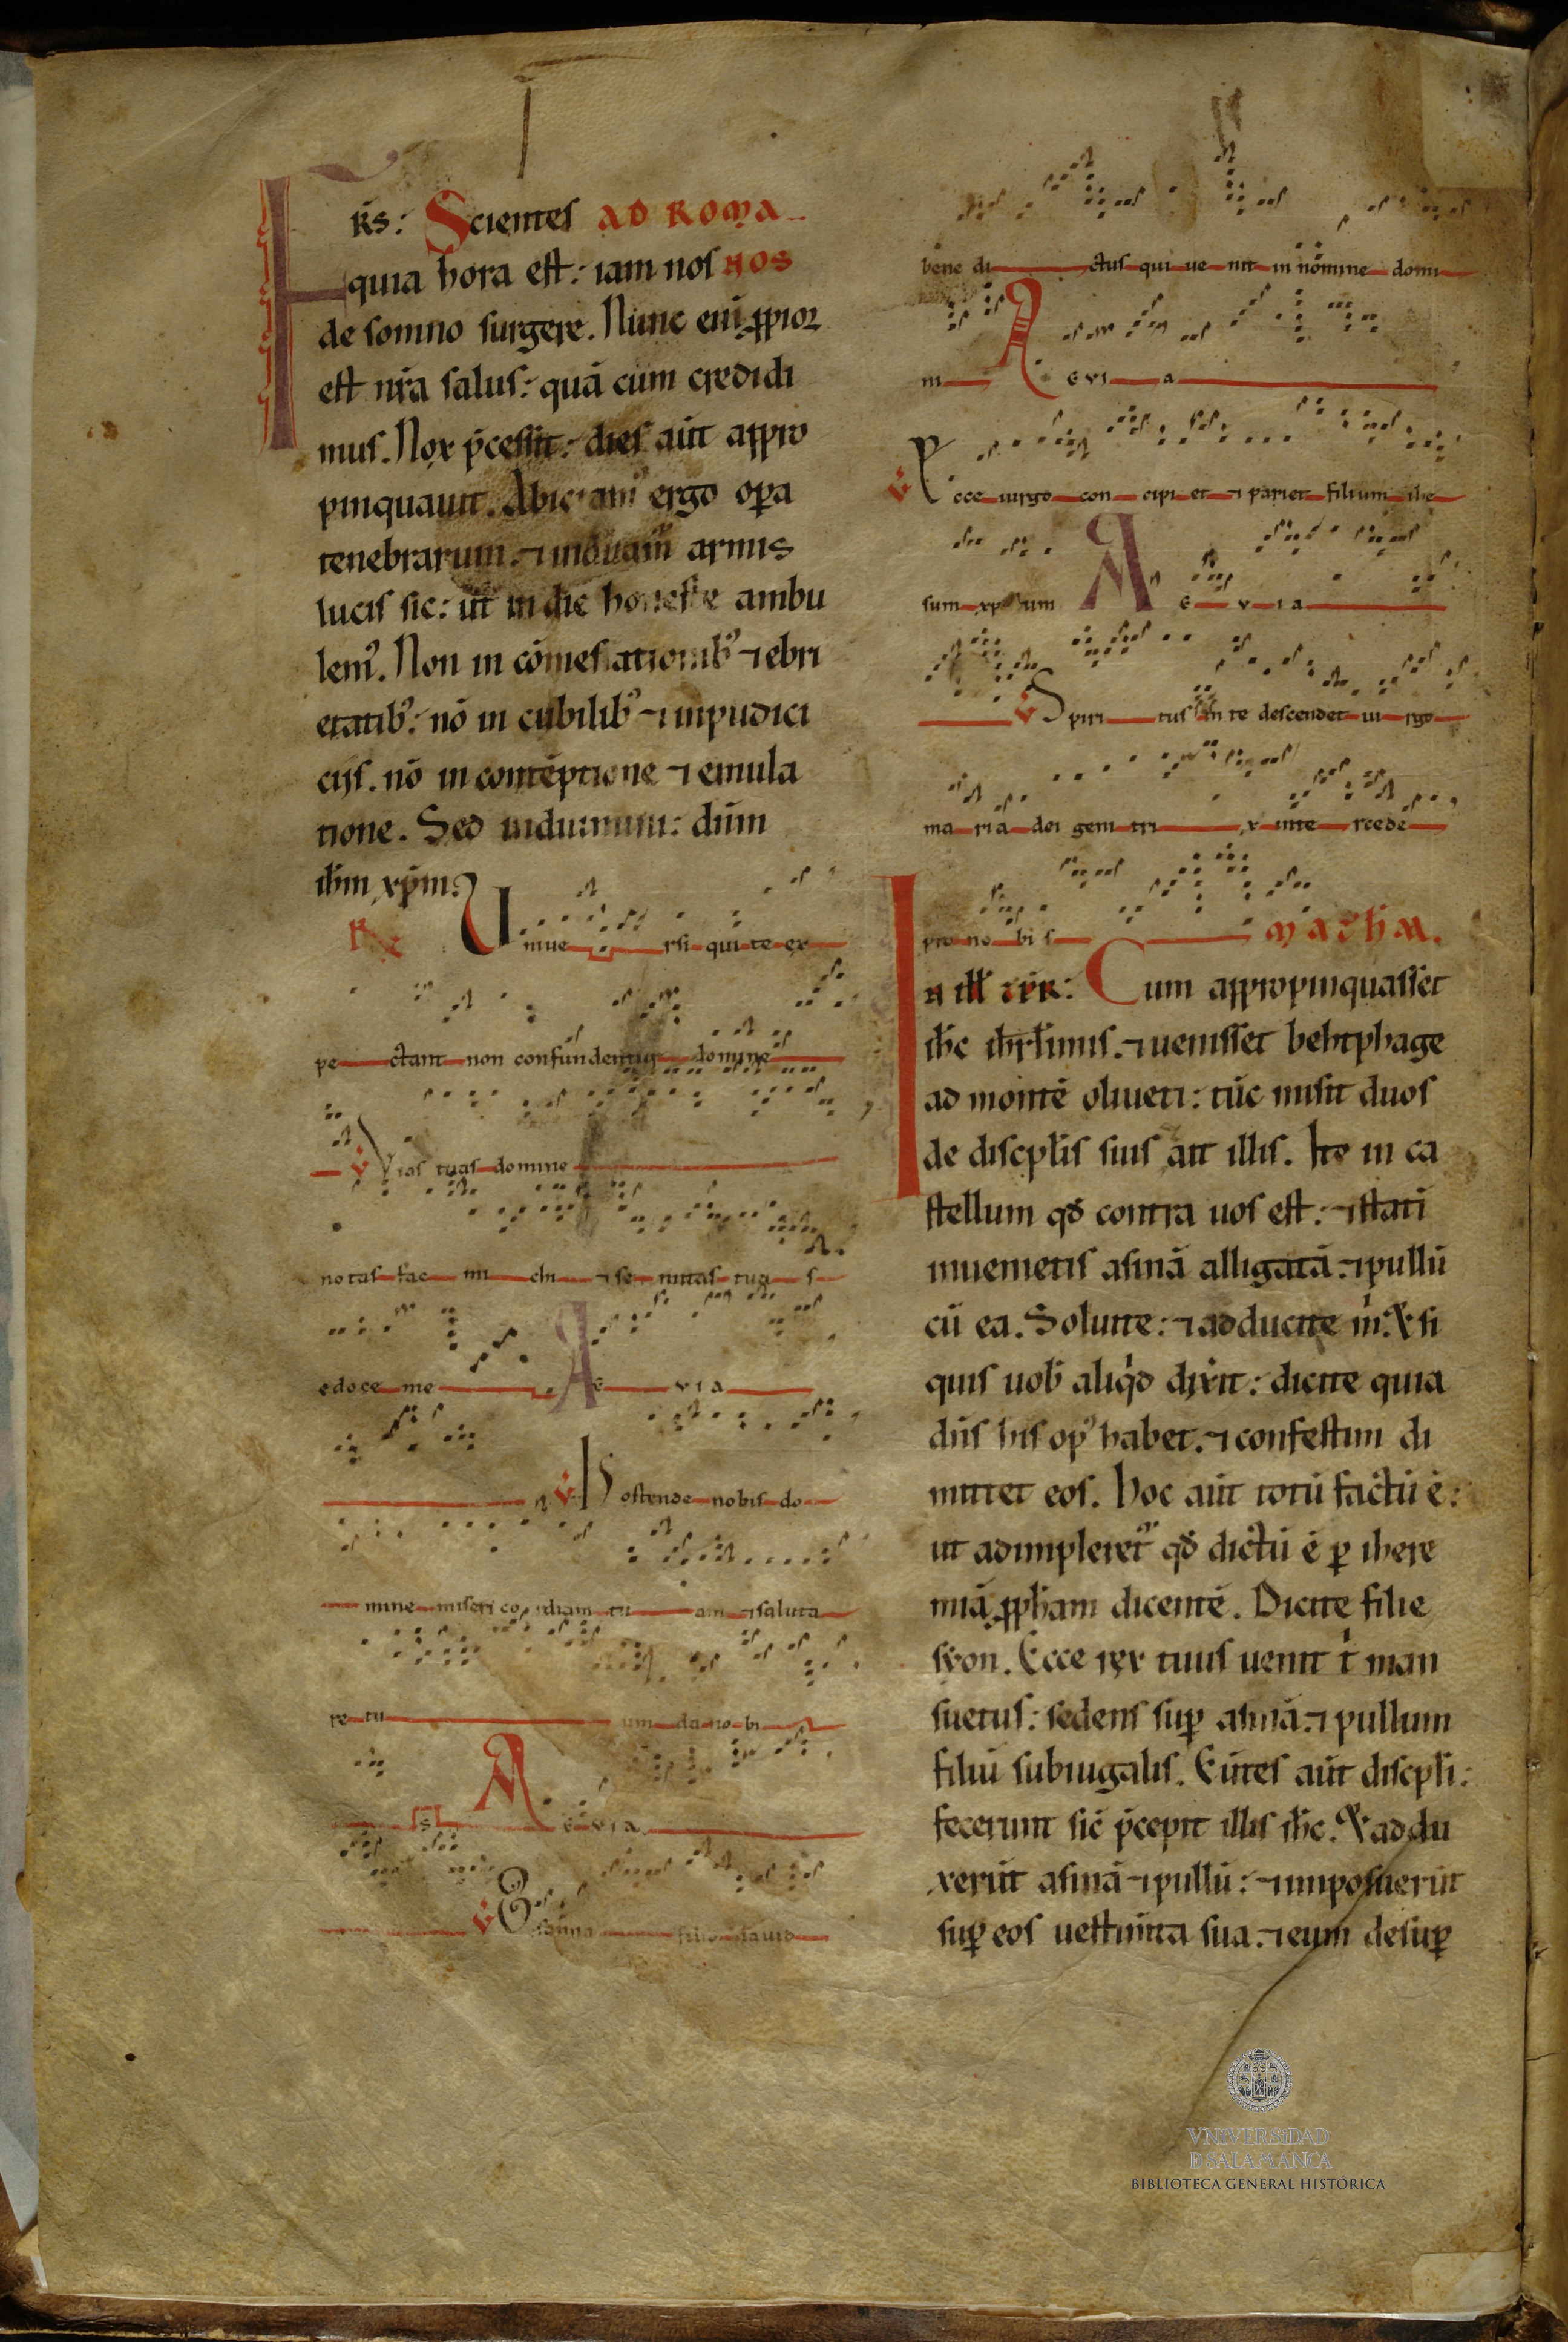 F
R̄S: Scientes AD ROMA
quia hora est: iam nos NOS
de somno surgere. Nunc eni̅ ꝓpior
est nr̄a salus: quā cum credidi
mus. Nox p̄cessit: dies aūt appro
pinquauit. Abiciam᾽ ergo oꝑa
tenebrarum. ⁊ induam᾽ armis
lucis sic: ut in die honeste ambu
lem᾽. Non in cōmesationib᾽ ⁊ ebri
etatib᾽: nō in cubilib᾽ ⁊ inpudici
ciis. nō in contēptione ⁊ emula
tione. Sed induimini: dūm
ih̄m xp̄m.
R̸
Uniue rsi qui te ex
pe ctant non confundentur domine
v Vias tuas domine
notas fac mi chi ⁊ se mitas tua s
edoce me A E V I A
v Hostende nobis do
mine misericordiam tu am ⁊ saluta
re tu um da no bi
s A E V I A
v Osanna filio dauid
bene di ctus qui ue nit in nomine domi
ni A E V I A
v Ecce uirgo con cipi et ⁊ pariet filium ihe
sum xp̄istum A E V I A
v Spiri tus in te descendet ui rgo
ma ria dei geni tri x inte rcede
pro no bi s MATH̄M.
In ill̄ t̄p̄r: Cum appropinquasset
ih̄c ih̄rl̄imis. ⁊ uenisset behtphage
ad montē oliueti: tūc misit duos
de discipl̄is suis ait illis. Ite in ca
stellum qđ contra uos est: ⁊ stati
inuenietis asinā alligatā. ⁊ pullū
cū ea. Soluite: ⁊ adducite m̄. Et si
quis uob̄ aliqd dix̄it: dicite quia
dn̄s his op᾽ habet. ⁊ confestim di
mittet eos. Hoc aūt totū factū ē:
ut adimpleret᾽ qđ dictū ē ꝑ ihere
miā ꝓph̄am dicentē. Dicite filie
syon. Ecce rex tuus uenit t̄ man
suetus: sedens suꝑ asinā. ⁊ pullum
filiū subiugalis. Eūtes aūt discipl̄i:
fecerunt sic̄ p̄cepit illis ih̄c. Et addu
xerūt asinā ⁊ pullū: ⁊ imposuerūt
suꝑ eos uestim̄ta sua. ⁊ eum desuꝑ
VNIVERSIDAD
D SALAMANCA
BIBLIOTECA GENERAL HISTÓRICA